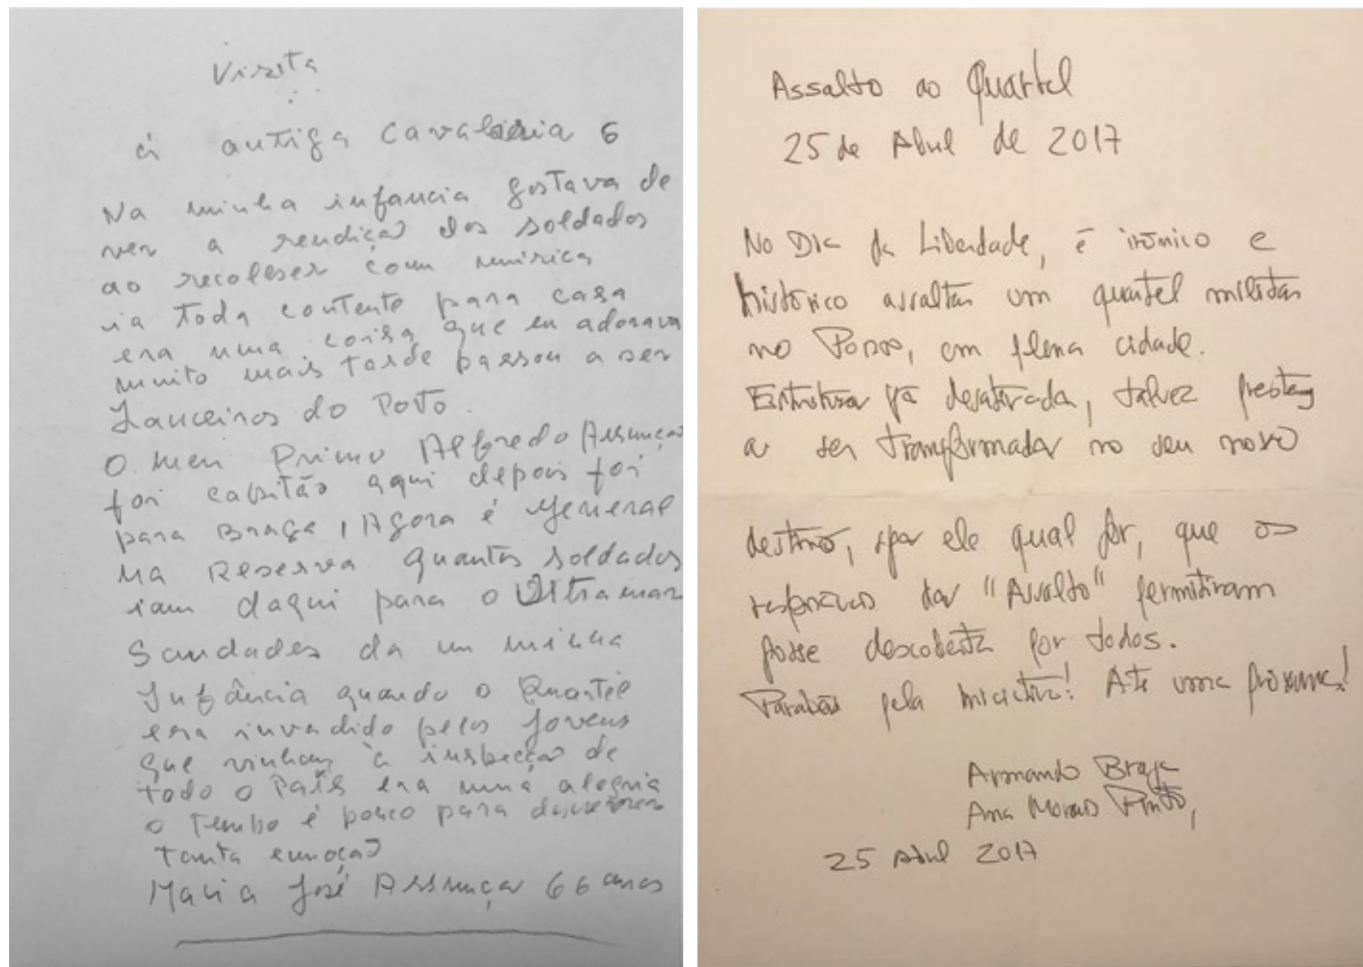 Visita
à antiga Cavalaria 6
Na minha infancia gostava de
ver a rendiçaõ dos soldados
ao recolher com música
ia toda contente para casa
era uma coisa que eu adorava
muito mais tarde passou a ser
Lanceiros do Porto.
O meu Primo Alfredo Assunçaõ
foi capitão aqui depois foi
para Braga, Agora é General
na Reserva quantos soldados
iam daqui para o Ultramar
Saudades da minha
Infância quando o Quartel
era invadido pelos Jovens
que vinham à inspecçaõ de
todo o País era uma alegria
o Tempo é pouco para descrever
tanta emoçaõ
Maria José Assunçaõ 66 anos
Assalto ao Quartel
25 de Abril de 2017
No Dia da Liberdade, é irónico e
histórico assaltar um quartel militar
no Porto, em plena cidade.
Estrutura já desativada, talvez prestes
a ser transformada no seu novo
destino, seja ele qual for, que os
responsáveis do "Assalto" permitiram
fosse descoberta por todos.
Parabéns pela iniciativa! Até uma próxima!
Armando Braga
Ana Morais Pinto,
25 Abril 2017